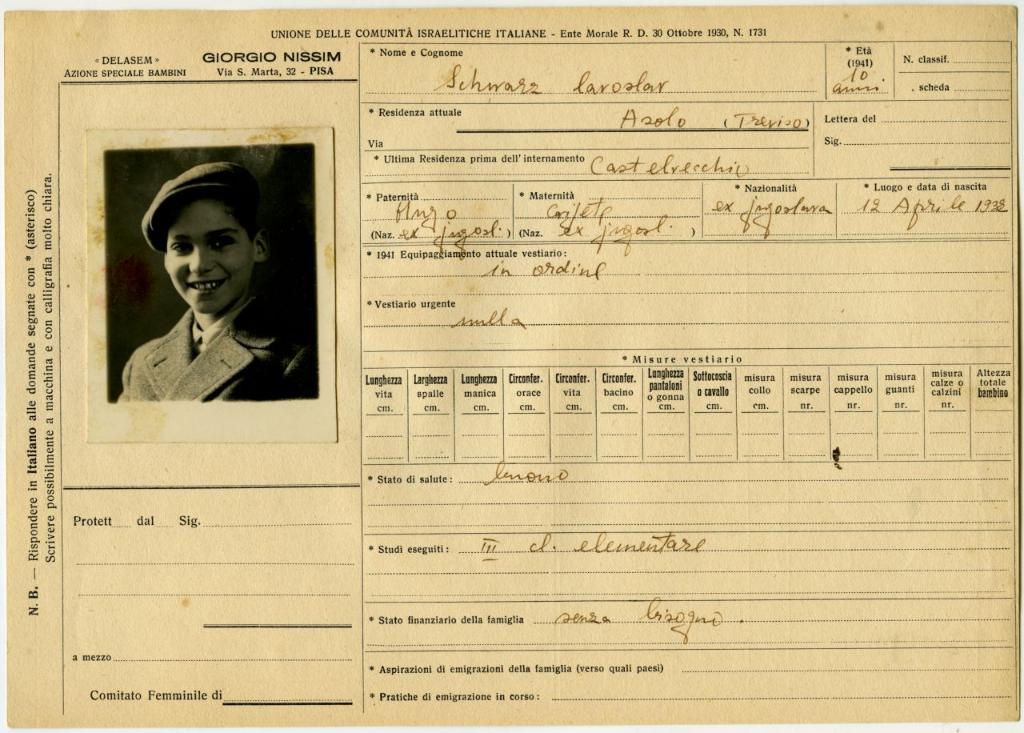 UNIONE DELLE COMUNITÀ ISRAELITICHE ITALIANE - Ente Morale R. D. 30 Ottobre 1930, N. 1731
« DELASEM »
AZIONE SPECIALE BAMBINI
GIORGIO NISSIM
Via S. Marta, 32 - PISA
N. B. — Rispondere in Italiano alle domande segnate con * (asterisco)
Scrivere possibilmente a macchina e con calligrafia molto chiara.
* Nome e Cognome
Schwarz Iaroslav
* Età
(1941)
10
anni
N. classif.
. scheda
* Residenza attuale
Asolo (Treviso)
Via
Lettera del
Sig.
* Ultima Residenza prima dell'internamento Castelvecchio
* Paternità
Hugo
(Naz. ex jugosl. )
* Maternità
(Naz. ex jugosl. )
* Nazionalità
ex jugoslava
* Luogo e data di nascita
12 Aprile 1932
* 1941 Equipaggiamento attuale vestiario :
in ordine
* Vestiario urgente
nulla
* Misure vestiario
Lunghezza vita cm.
Larghezza spalle cm.
Lunghezza manica cm.
Circonfer. orace cm.
Circonfer. vita cm.
Circonfer. bacino cm.
Lunghezza pantaloni o gonna cm.
Sottocoscia o cavallo cm.
misura collo cm.
misura scarpe nr.
misura cappello nr.
misura guanti nr.
misura calze o calzini nr.
Altezza totale bambino
* Stato di salute : buono
* Studi eseguiti : III cl. elementare
* Stato finanziario della famiglia senza bisogno .
* Aspirazioni di emigrazioni della famiglia (verso quali paesi)
* Pratiche di emigrazione in corso :
Protett dal Sig.
a mezzo
Comitato Femminile di